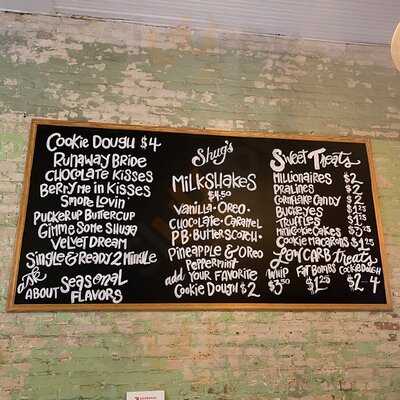 Cookie Dough $4
Runaway Bride
Chocolate Kisses
Berry me in Kisses
Smore Lovin'
Pucker up Buttercup
Gimme Some Shuga
Velvet Dream
Single & Ready 2 Mingle
ask about Seasonal Flavors
Shug's
Milkshakes
$4.50
Vanilla · Oreo ·
Chocolate · Caramel
P.B. · Butterscotch ·
Pineapple & Oreo
Peppermint
add your favorite
Cookie Dough $2
Sweet Treats
Millionaires $2
Pralines $2
Cornflake Candy $2
Buckeyes $1.25
Truffles
Milk Cookie Cakes
Cookie Macarons $1.25
Low Carb treats
Whip Fat Bombs Cookie Dough
$3.50 $1.25 $2-4